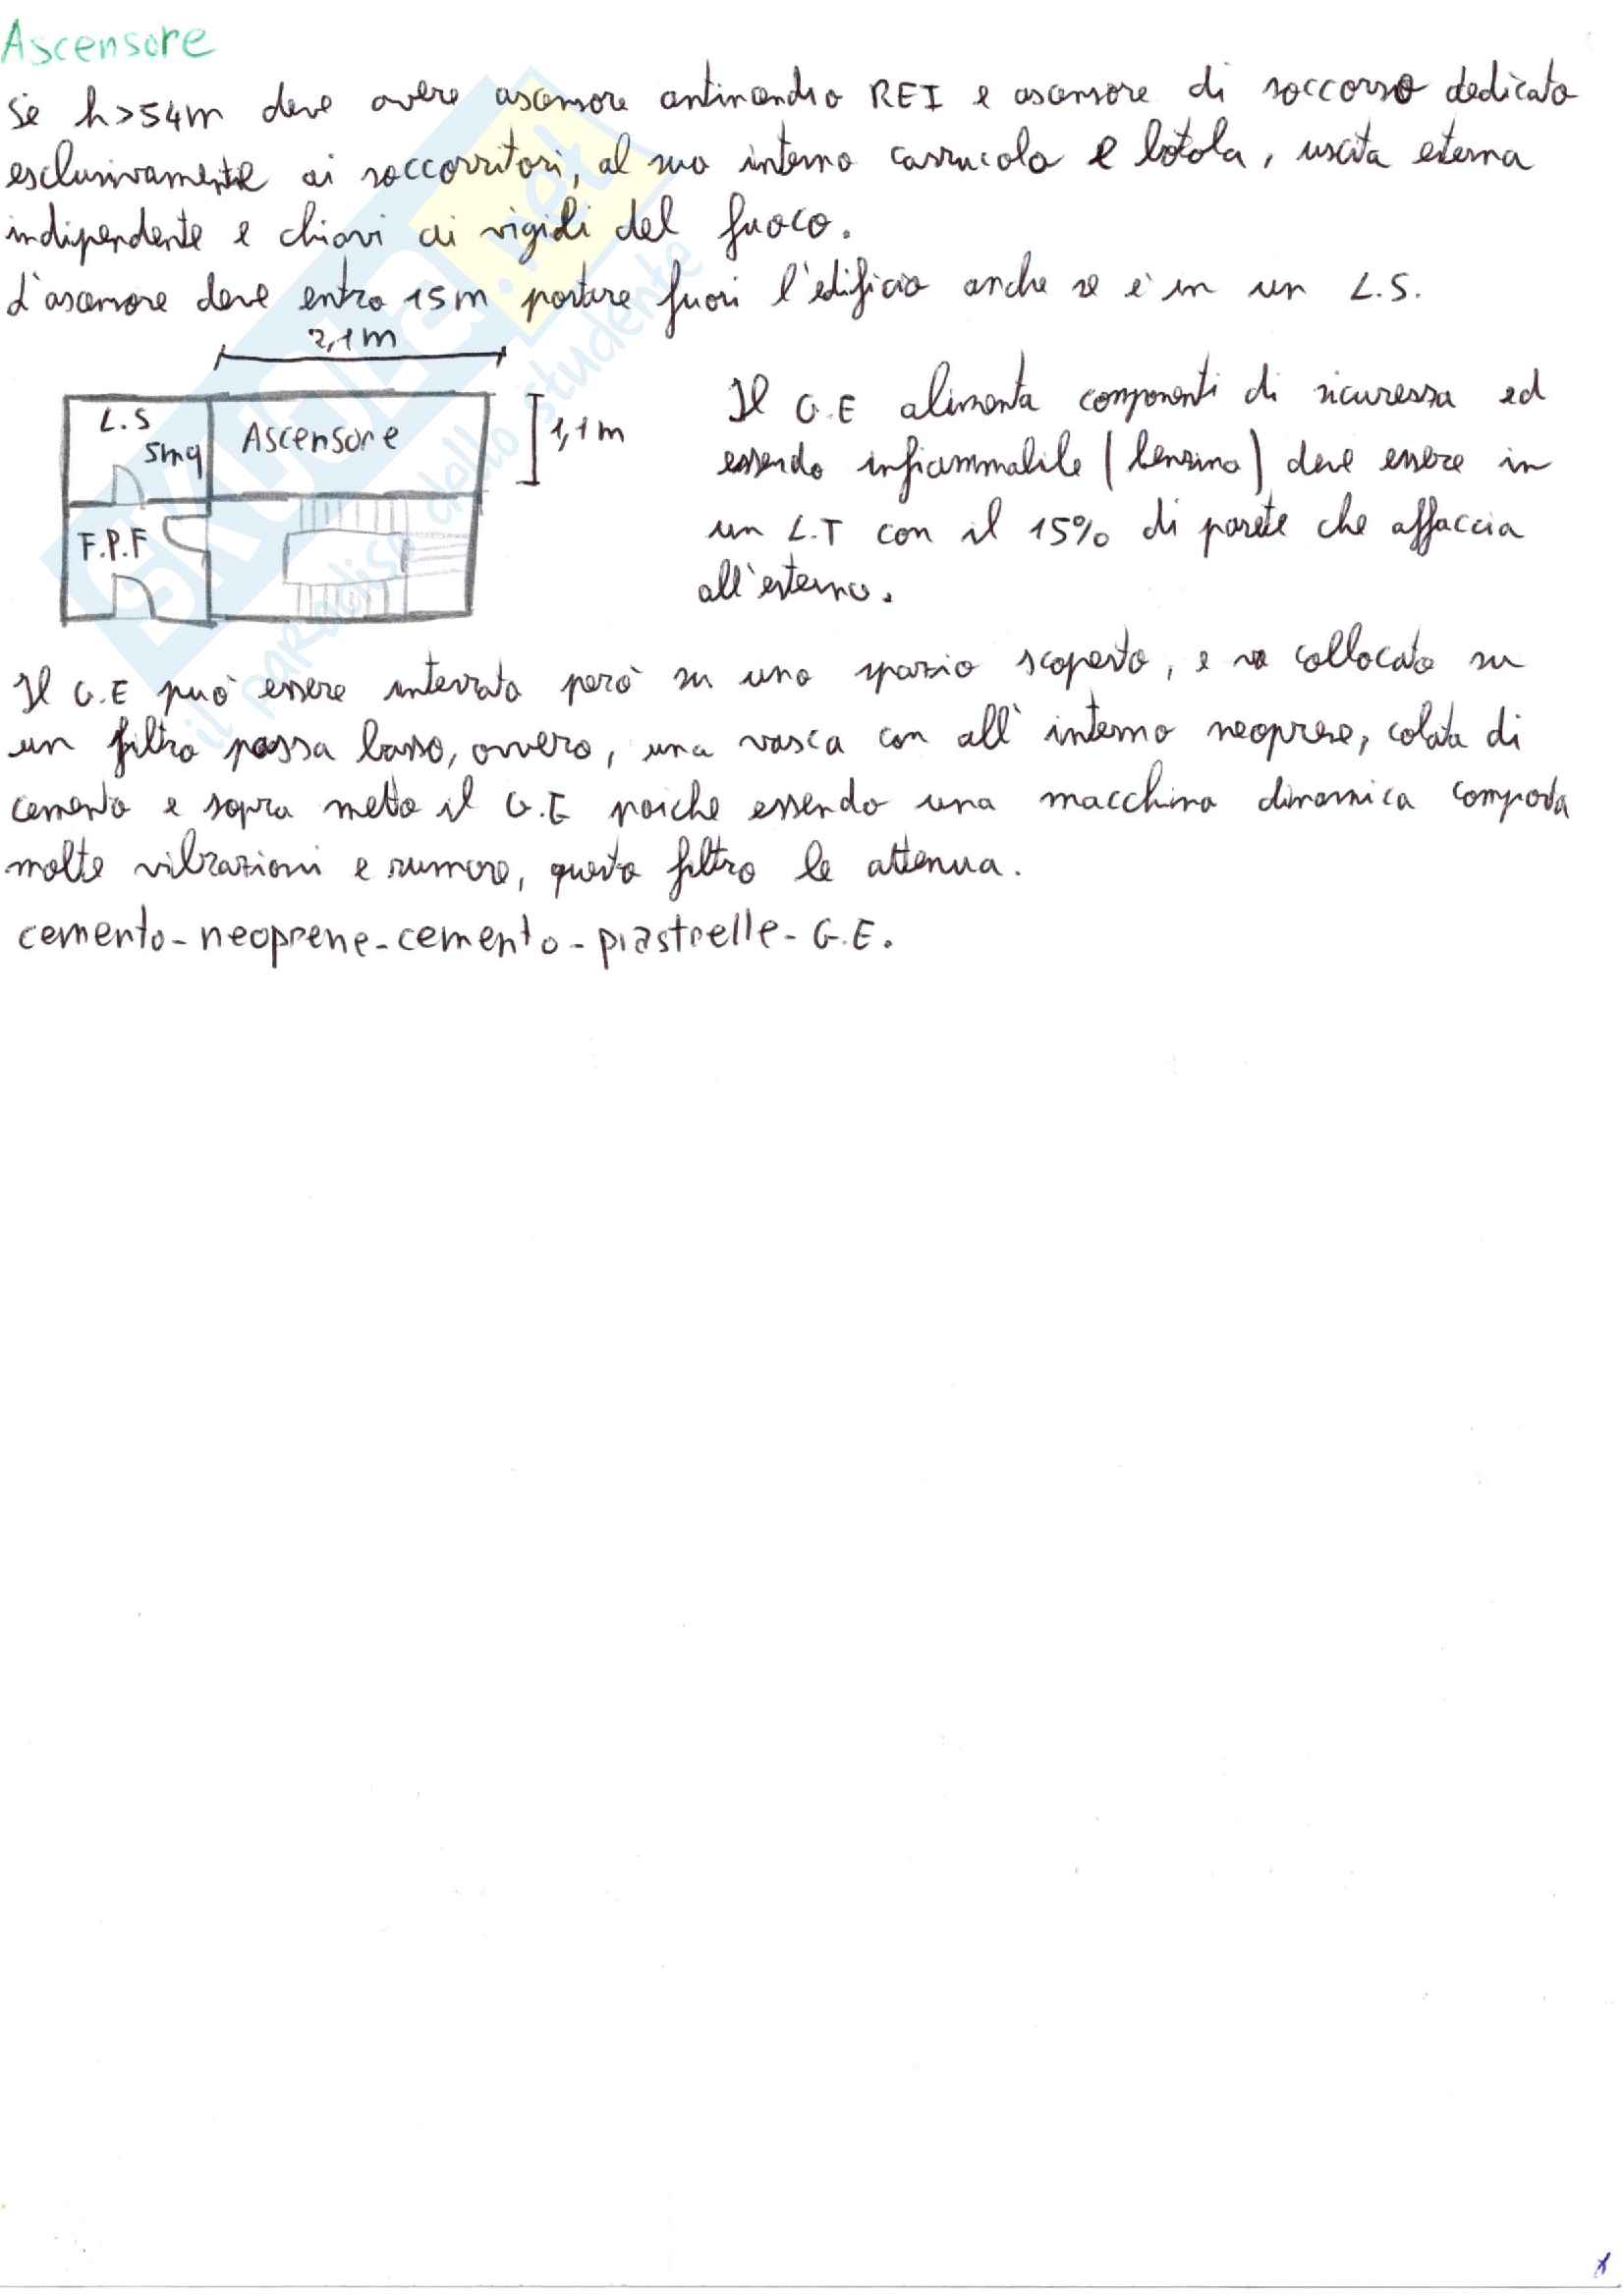 Ascensore
Se h>54m deve avere ascensore antincendio REI e ascensore di soccorso dedicato
esclusivamente ai soccorritori, al suo interno carrucola e botola, uscita esterna
indipendente e chiavi ai vigili del fuoco.
L'ascensore deve entro 15m portare fuori l'edificio anche se è in un L.S.
2,1m
L.S
5mq
Ascensore
1,1m
F.P.F
Il G.E alimenta componenti di sicurezza ed
essendo infiammabile (benzina) deve essere in
un L.T con il 15% di parete che affaccia
all'esterno.
Il G.E può essere interrato però su uno spazio scoperto, e va collocato su
un filtro passa basso, ovvero, una vasca con all'interno neoprene, colata di
cemento e sopra metto il G.E poiche essendo una macchina dinamica comporta
molte vibrazioni e rumore, questo filtro le attenua.
cemento-neoprene-cemento-piastrelle-G.E.
SKUOLA.net
il paradiso dello studente